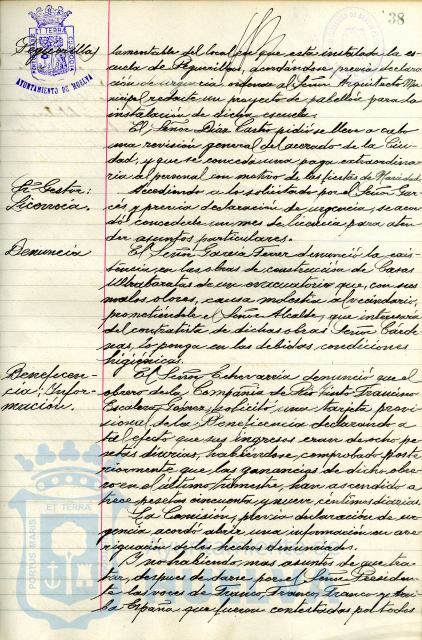 38
AYUNTAMIENTO DE HUELVA
Peguerillas
lamentable del local en que está instalada la es
cuela de Peguerillas, acordándose, previa declara
ción de urgencia, ordenar al Señor Arquitecto Mu
nicipal redacte un proyecto de pabellón para la
instalación de dicha escuela.
El Señor Díaz Castro pidió se lleve a cabo
una revisión general del acerado de la Ciu
dad, y que se conceda una paga extraordina
ria al personal con motivo de las fiestas de Navidad.
Sr. Gestor:
Licencia.
Accediendo a lo solicitado por el Señor Gar
cés y previa declaración de urgencia, se acor
dó concederle un mes de licencia para aten
der asuntos particulares.
Denuncia
El Señor García Ferrer denunció la exis
tencia en las obras de construcción de Casas
Ultrabaratas de un evacuatorio que, con sus
malos olores, causa molestia al vecindario,
prometiéndole el Señor Alcalde, que interesaría
del contratista de dichas obras Señor Cárde
nas, lo ponga en las debidas condiciones
higiénicas.
Beneficen-
cia: Infor-
mación.
El Señor Echevarría denunció que el
obrero de la Compañía de Río Tinto Francisco
Escalera, solicitó una tarjeta provi
sional de la Beneficencia declarando a
tal efecto que sus ingresos eran de ocho pe
setas diarias, habiéndose comprobado poste
riormente que las ganancias de dicho obre
ro en el último trimestre han ascendido a
trece pesetas cincuenta y nueve céntimos diarias.
La Comisión, previa declaración de ur
gencia, acordó abrir una información en ave
riguación de los hechos denunciados.
Y no habiendo mas asuntos de que tra
tar, despues de darse por el Señor Presiden
te las voces de Franco, Franco, Franco y Arri
ba España que fueron contestadas por todos
PORTUS MARIS ET TERRÆ
Ayuntamiento de
HUELVA